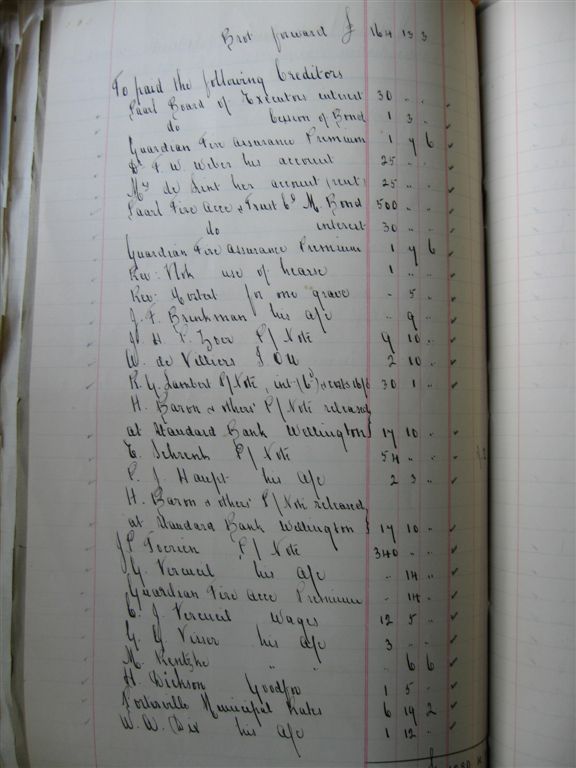 Brot forward £ 164 13 3
To paid the following Creditors
Paarl Board of Executors interest 30 " "
do Cession of Bond 1 3 "
Guardian Fire Assurance Premium 1 7 6
Dr F. W. Weber his account 25 " "
Mrs de Smit her account (rent) 25 " "
Paarl Fire Acce & Trust Co M Bond 500 " "
do interest 30 " "
Guardian Fire Assurance Premium 1 7 6
Rev: use of hearse 1 " "
Rev: for one grave " 5 "
J. F. Brinkman his a/c " 9 "
H. P. P/Note 9 10 "
W. de Villiers I O U 2 10 "
R. G. Lambert P/Note, int (6d) & costs 16/6 30 1 "
H. Baron & others' P/Note released
at Standard Bank Wellington 17 10 "
E. Schrenk P/Note 54 " "
P. J. Haupt his a/c 2 3 "
H. Baron & others' P/Note released
at Standard Bank Wellington 17 10 "
J P Toerien P/Note 340 " "
J. G. Vercueil his a/c " 14 "
Guardian Fire Acce Premium " 14 "
C. J. Vercueil Wages 12 5 "
G. Y Visser his a/c 3 " "
M. " " " 6 6
H. Dickson Goodfor 1 5 "
Porterville Municipal Rates 6 19 2
W. W. Dix his a/c 1 12 "